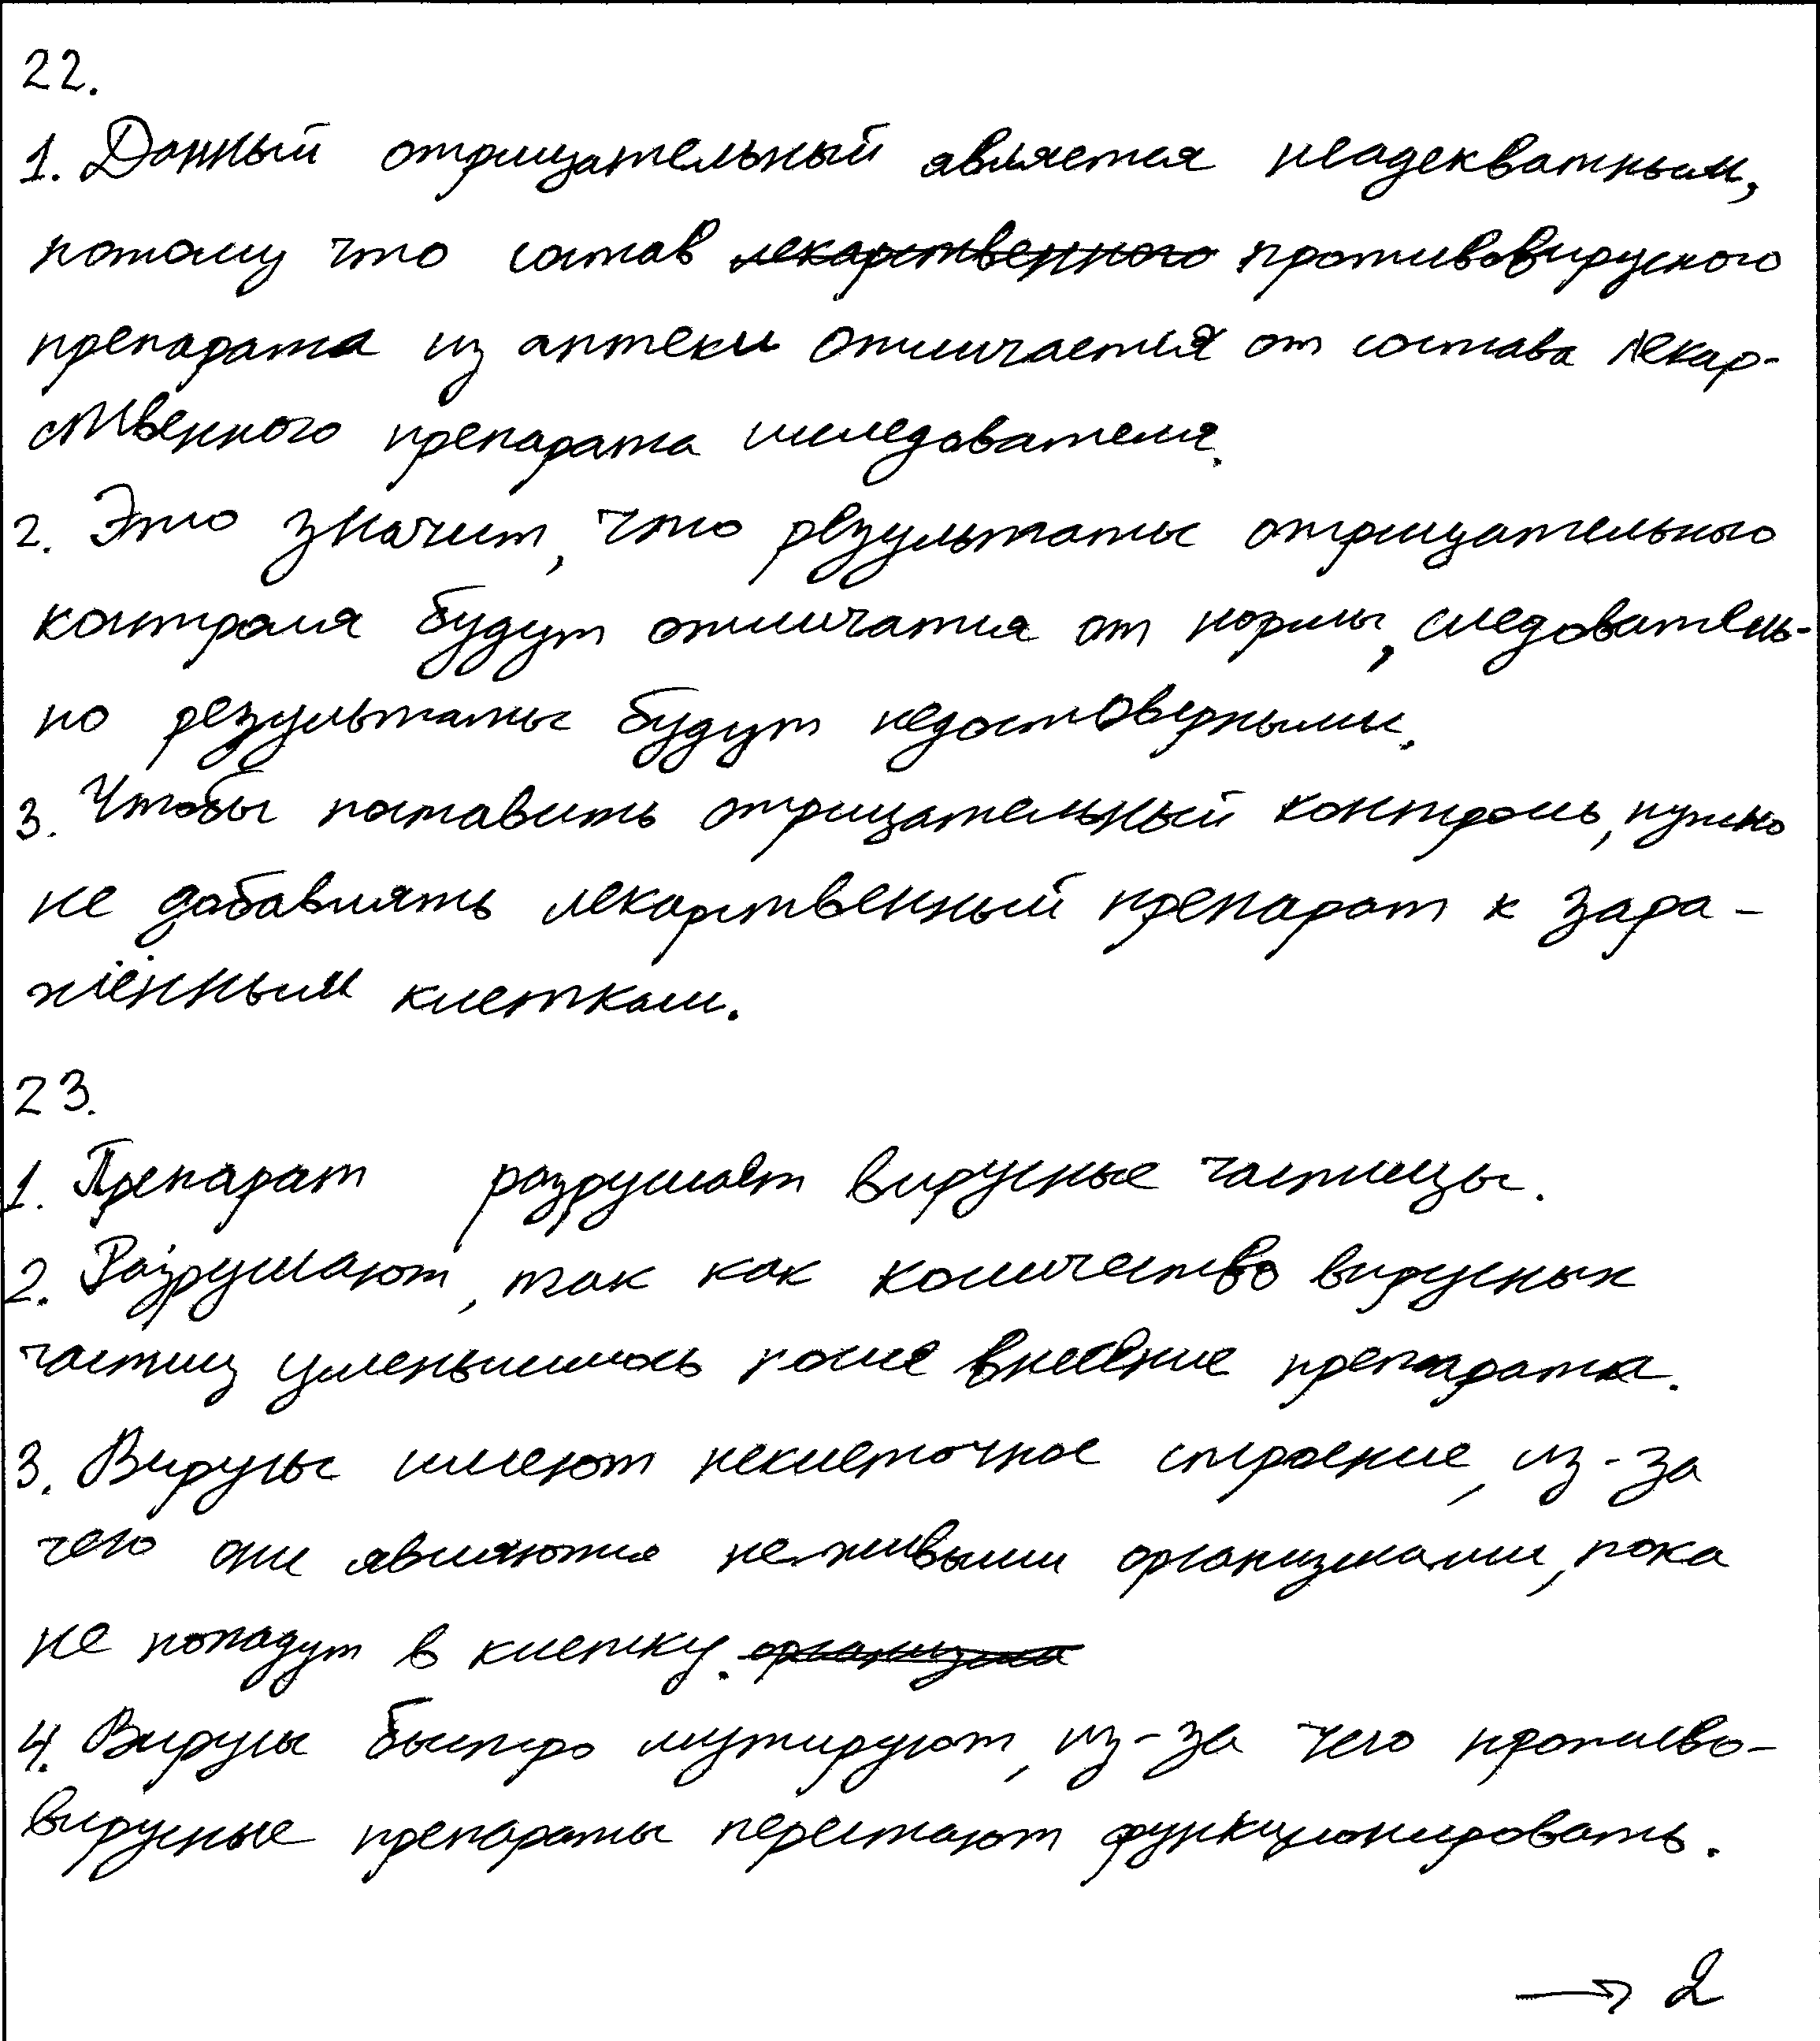 22.
1. Данный отрицательный является неадекватным,
потому что состав лекарственного противовирусного
препарата из аптеки отличается от состава лекар-
ственного препарата исследователя.
2. Это значит, что результаты отрицательного
контроля будут отличатся от нормы, следователь-
но результаты будут недостоверными.
3. Чтобы поставить отрицательный контроль, нужно
не добавлять лекарственный препарат к зара-
жённым клеткам.
23.
1. Препарат разрушает вирусные частицы.
2. Разрушают, так как количество вирусных
частиц уменьшилось после внесение препарата.
3. Вирусы имеют неклеточное строение, из-за
чего они являются неживыми организмами, пока
не попадут в клетку. организма
4. Вирусы быстро мутируют, из-за чего противо-
вирусные препараты перестают функционировать.
→ 2